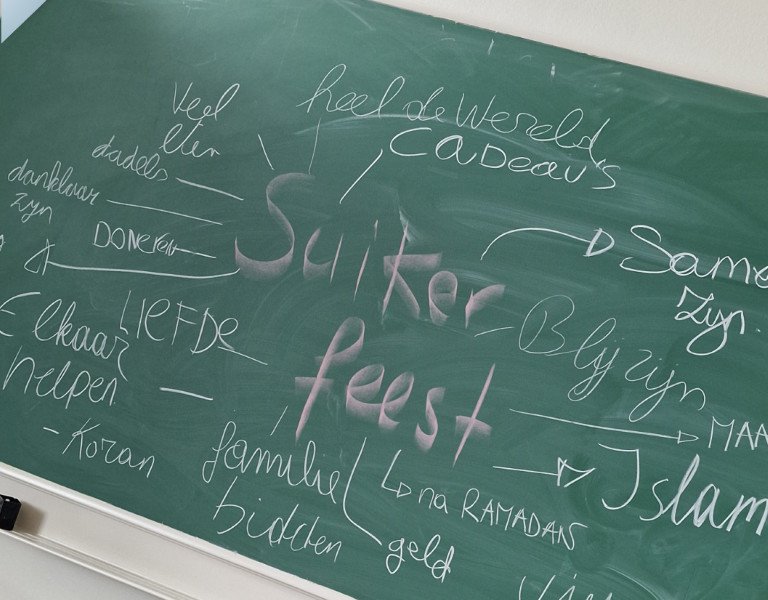 heel de Wereld
Veel
eten
Cadeau's
dadels
dankbaar
zijn
Suiker
feest
DONEREN
Same
zijn.
LIEFDE
Elkaar
helpen
Blij zijn
MAA
- Koran
familie
bidden
na RAMADAN
geld
Islam